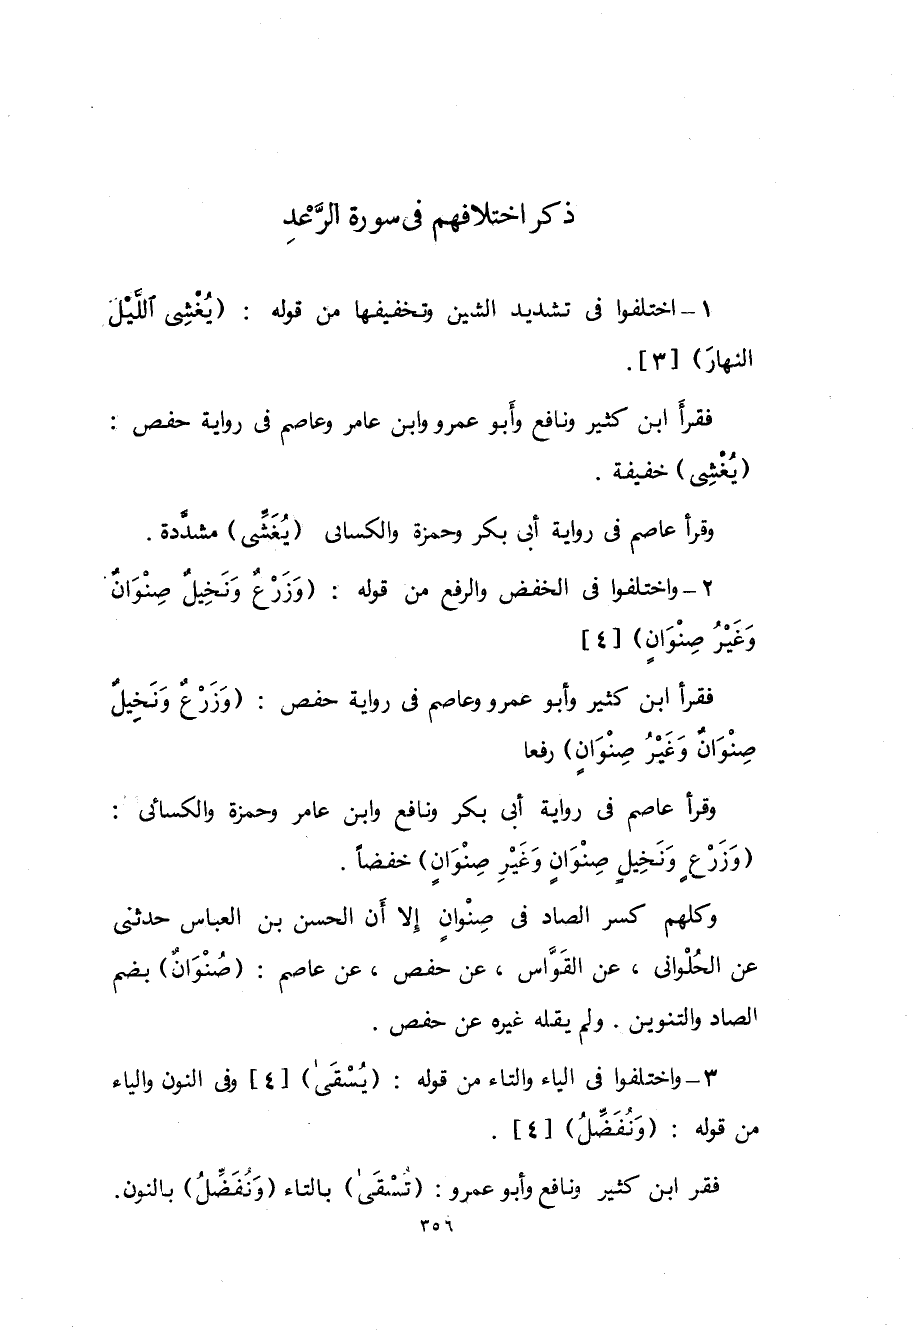 ذكر اختلافهم فى سورة الرَّعْدِ
١ – اختلفوا فى تشديد الشين وتخفيفها من قوله : (يُغْشِى ٱللَّيْلَ
النهارَ) [٣] .
فقرأَ ابن كثير ونافع وأَبو عمرو وابن عامر وعاصم فى رواية حفص :
(يُغْشِى) خفيفة .
وقرأ عاصم فى رواية أبى بكر وحمزة والكسائى (يُغَشِّى) مشدَّدة .
٢ – واختلفوا فى الخفض والرفع من قوله : (وَزَرْعٌ وَنَخِيلٌ صِنْوَانٌ
وَغَيْرُ صِنْوَانٍ) [٤]
فقرأ ابن كثير وأبو عمرو وعاصم فى رواية حفص : (وَزَرْعٌ وَنَخِيلٌ
صِنْوَانٌ وَغَيْرُ صِنْوَانٍ) رفعا
وقرأ عاصم فى رواية أبى بكر ونافع وابن عامر وحمزة والكسائى :
(وَزَرْعٍ وَنَخِيلٍ صِنْوَانٍ وَغَيْرِ صِنْوَانٍ) خفضاً .
وكلهم كسر الصاد فى صِنْوانٍ إلا أَن الحسن بن العباس حدثنى
عن الحُلْوانى ، عن القَوَّاس ، عن حفص ، عن عاصم : (صُنْوَانٌ) بضم
الصاد والتنوين . ولم يقله غيره عن حفص .
٣ – واختلفوا فى الياء والتاء من قوله : (يُسْقَىٰ) [٤] وفى النون والياء
من قوله : (وَنُفَضِّلُ) [٤] .
فقر ابن كثير ونافع وأبو عمرو : (تُسْقَىٰ) بالتاء (وَنُفَضِّلُ) بالنون.
٣٥٦